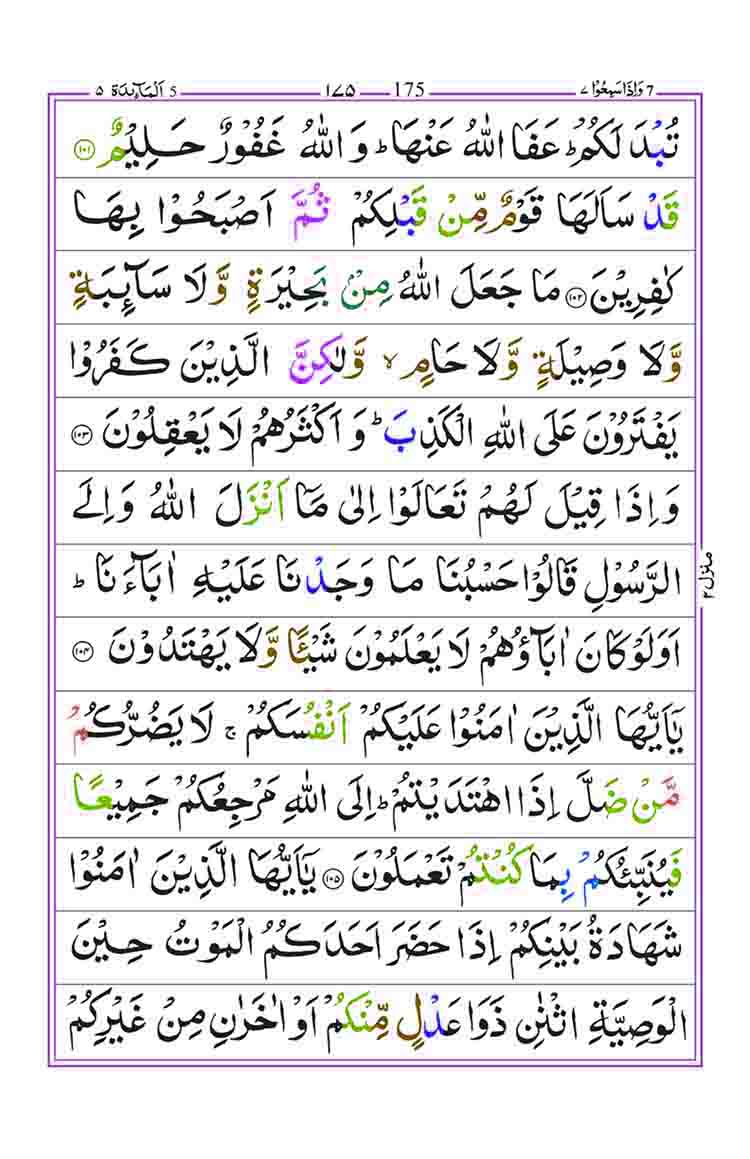 7 وَاِذَاسَمِعُوْا ۷ 175 ۱۷۵ 5 اَلْمَآئِدَة ۵
تُبْدَ لَكُمْ ؕ عَفَا اللهُ عَنْهَا ؕ وَ اللهُ غَفُوْرٌ حَلِيْمٌ ﴿۱۰۱﴾
قَدْ سَاَلَهَا قَوْمٌ مِّنْ قَبْلِكُمْ ثُمَّ اَصْبَحُوْا بِهَا
كٰفِرِيْنَ ﴿۱۰۲﴾ مَا جَعَلَ اللهُ مِنْۢ بَحِيْرَةٍ وَّلَا سَآئِبَةٍ
وَّلَا وَصِيْلَةٍ وَّلَا حَامٍ ۙ وَّلٰكِنَّ الَّذِيْنَ كَفَرُوْا
يَفْتَرُوْنَ عَلَى اللهِ الْكَذِبَ ؕ وَ اَكْثَرُهُمْ لَا يَعْقِلُوْنَ ﴿۱۰۳﴾
وَ اِذَا قِيْلَ لَهُمْ تَعَالَوْا اِلٰى مَاۤ اَنْزَلَ اللهُ وَ اِلَى
الرَّسُوْلِ قَالُوْا حَسْبُنَا مَا وَجَدْنَا عَلَيْهِ اٰبَآءَنَا ؕ
اَوَلَوْ كَانَ اٰبَآؤُهُمْ لَا يَعْلَمُوْنَ شَيْئًا وَّلَا يَهْتَدُوْنَ ﴿۱۰۴﴾
يٰۤاَيُّهَا الَّذِيْنَ اٰمَنُوْا عَلَيْكُمْ اَنْفُسَكُمْ ۚ لَا يَضُرُّكُمْ
مَّنْ ضَلَّ اِذَا اهْتَدَيْتُمْ ؕ اِلَى اللهِ مَرْجِعُكُمْ جَمِيْعًا
فَيُنَبِّئُكُمْ بِمَا كُنْتُمْ تَعْمَلُوْنَ ﴿۱۰۵﴾ يٰۤاَيُّهَا الَّذِيْنَ اٰمَنُوْا
شَهَادَةُ بَيْنِكُمْ اِذَا حَضَرَ اَحَدَكُمُ الْمَوْتُ حِيْنَ
الْوَصِيَّةِ اثْنٰنِ ذَوَا عَدْلٍ مِّنْكُمْ اَوْ اٰخَرٰنِ مِنْ غَيْرِكُمْ
منزل ۲